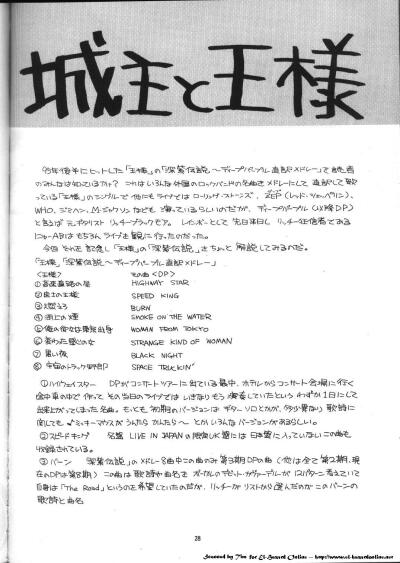 城主と王様
95年後半にヒットした「王様」の「深紫伝説〜ディープパープル直訳メドレー」って読者
のみんなは知っているかナ? これはいろんな外国のロックバンドの名曲をメドレーにして直訳して歌
っている「王様」のシングルで他にもライブではローリングストーンズ、ZEP(レッド・ツェッペリン)、
WHO、ジミヘン、M・ジャクソンなども
と言えば ギタリスト リッチー・ブラックモア。 レインボーとして先日来日し リッチー狂信者である
もちろん ライブを観に行ったのだった。
今回 それを記念し「王様」の「深紫伝説」をちょっと解説してみるべェ。
「王様」「深紫伝説〜ディープパープル直訳メドレー」
<王様> 元の曲<DP>
①高速道路の星 HIGHWAY STAR
②速さの王様 SPEED KING
③燃えろ BURN
④湖上の煙 SMOKE ON THE WATER
⑤俺の彼女は東京出身 WOMAN FROM TOKYO
⑥変わった感じの女 STRANGE KIND OF WOMAN
⑦黒い夜 BLACK NIGHT
⑧宇宙のトラック野郎 SPACE TRUCKIN'
①ハイウェイスター DPがコンサートツアーに出ている最中、ホテルからコンサート会場に行く
途中車の中で作って、その当日のライブではいきなりもう演奏していたという わずか1日にして
出来上がってしまった名曲。もっとも、初期のバージョンは ギターソロとかが、多少異なり 歌詞に
関しても ♪ミッキーマウスが うんたら かんたら〜 とかいろんなバージョンがあるらしい。
②スピードキング 名盤 LIVE IN JAPANの限定UK盤には日本盤に入っていない この曲も
収録されている。
③バーン 「深紫伝説」のメドレー8曲中この曲のみ第3期DPの曲(他は全て第2期、現
在のDPは第8期) この曲は歌詞や曲名を ボーカルのデビット・カヴァーデルが 考えていて
自身は「The Road」というのを希望していたのだが、リッチーがリストから選んだのがこのバーンの
歌詞と曲名
28
Scanned by Tim for El-Board Online — http://www.el-boardonline.net